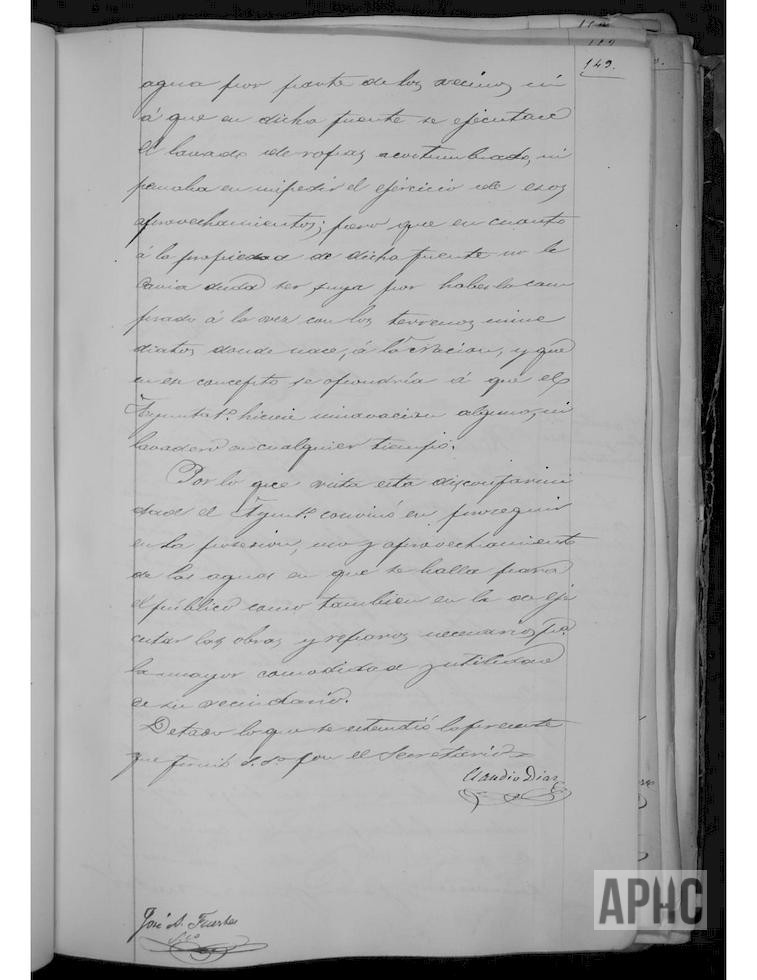 149.
agua por parte de los vecinos, ni
á que en dicha fuente se ejecutare
el lavado de ropas acostumbrado, ni
pensaba en impedir el ejercicio de esos
aprovechamientos; pero que en cuanto
á la propiedad de dicha fuente no le
cavia duda ser suya por haberla com
prado á la vez con los terrenos inme
diatos donde nace, á la Nacion, y que
en ese concepto se opondría á que el
Ayuntat.º hiciese innovacion alguna, ni
lavadero en cualquier tiempo.
Por lo que vista esta disconformi
dad el Ayunt.º convinó en proseguir
en la posesion, uso y aprovechamiento
de las aguas en que se halla para
el público como tambien en la de eje
cutar las obras y reparos necesarios p.ª
la mayor comodidad y utilidad
de su vecindario.
De todo lo que se estendió la presente
que firmó S. Sª con el Secretario
Claudio Diaz
José A. Fuertes
Srio
APHC